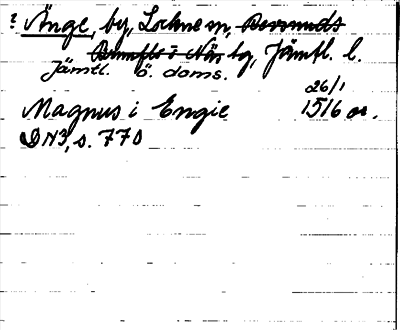 ? Änge, by, Lockne sn, Revsunds
i Näs tg, Jämtl. l.
Jämtl. ö. doms.
26/1
Magnus i Engie 1516 or.
DN3, s. 770